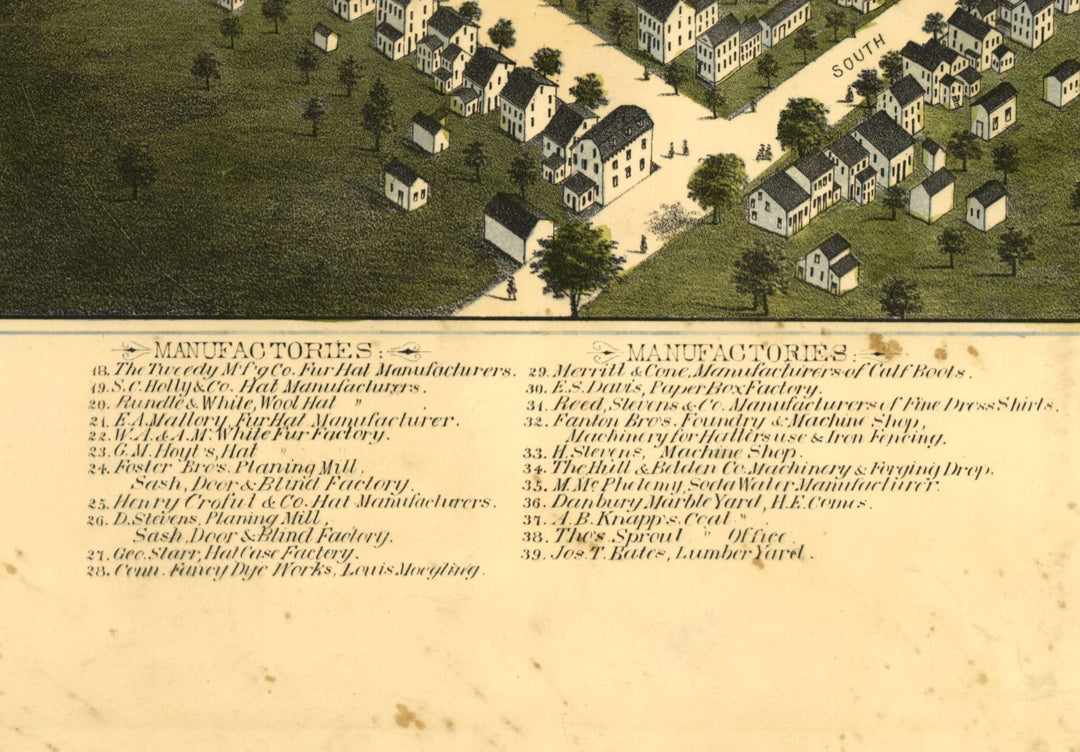 SOUTH
MANUFACTORIES:
18. The Tweedy M'f'g Co. Fur Hat Manufacturers.
19. S.C. Holly & Co. Hat Manufacturers.
20. Rundle & White, Wool Hat "
21. E.A. Mallory, Fur Hat Manufacturer.
22. W.A. & A.M. White Fur Factory.
23. G.M. Hoyt's, Hat "
24. Foster Bro's. Planing Mill,
Sash, Door & Blind Factory.
25. Henry Croful & Co. Hat Manufacturers.
26. D. Stevens, Planing Mill,
Sash, Door & Blind Factory.
27. Geo. Starr, Hat Case Factory.
28. Conn. Fancy Dye Works, Louis Moegling.
MANUFACTORIES:
29. Merrill & Cone, Manufacturers of Calf Boots.
30. E.S. Davis, Paper Box Factory.
31. Reed, Stevens & Co. Manufacturers of Fine Dress Shirts.
32. Fanton Bro's. Foundry & Machine Shop,
Machinery for Hatters use & Iron Fencing.
33. H. Stevens, Machine Shop.
34. The Hull & Belden Co. Machinery & Forging Drop.
35. M. Mc Phelemy, Soda Water Manufacturer.
36. Danbury Marble Yard, H.E. Comes.
37. A.B. Knapp's Coal "
38. Tho's. Sproul " Office.
39. Jos. T. Bates, Lumber Yard.